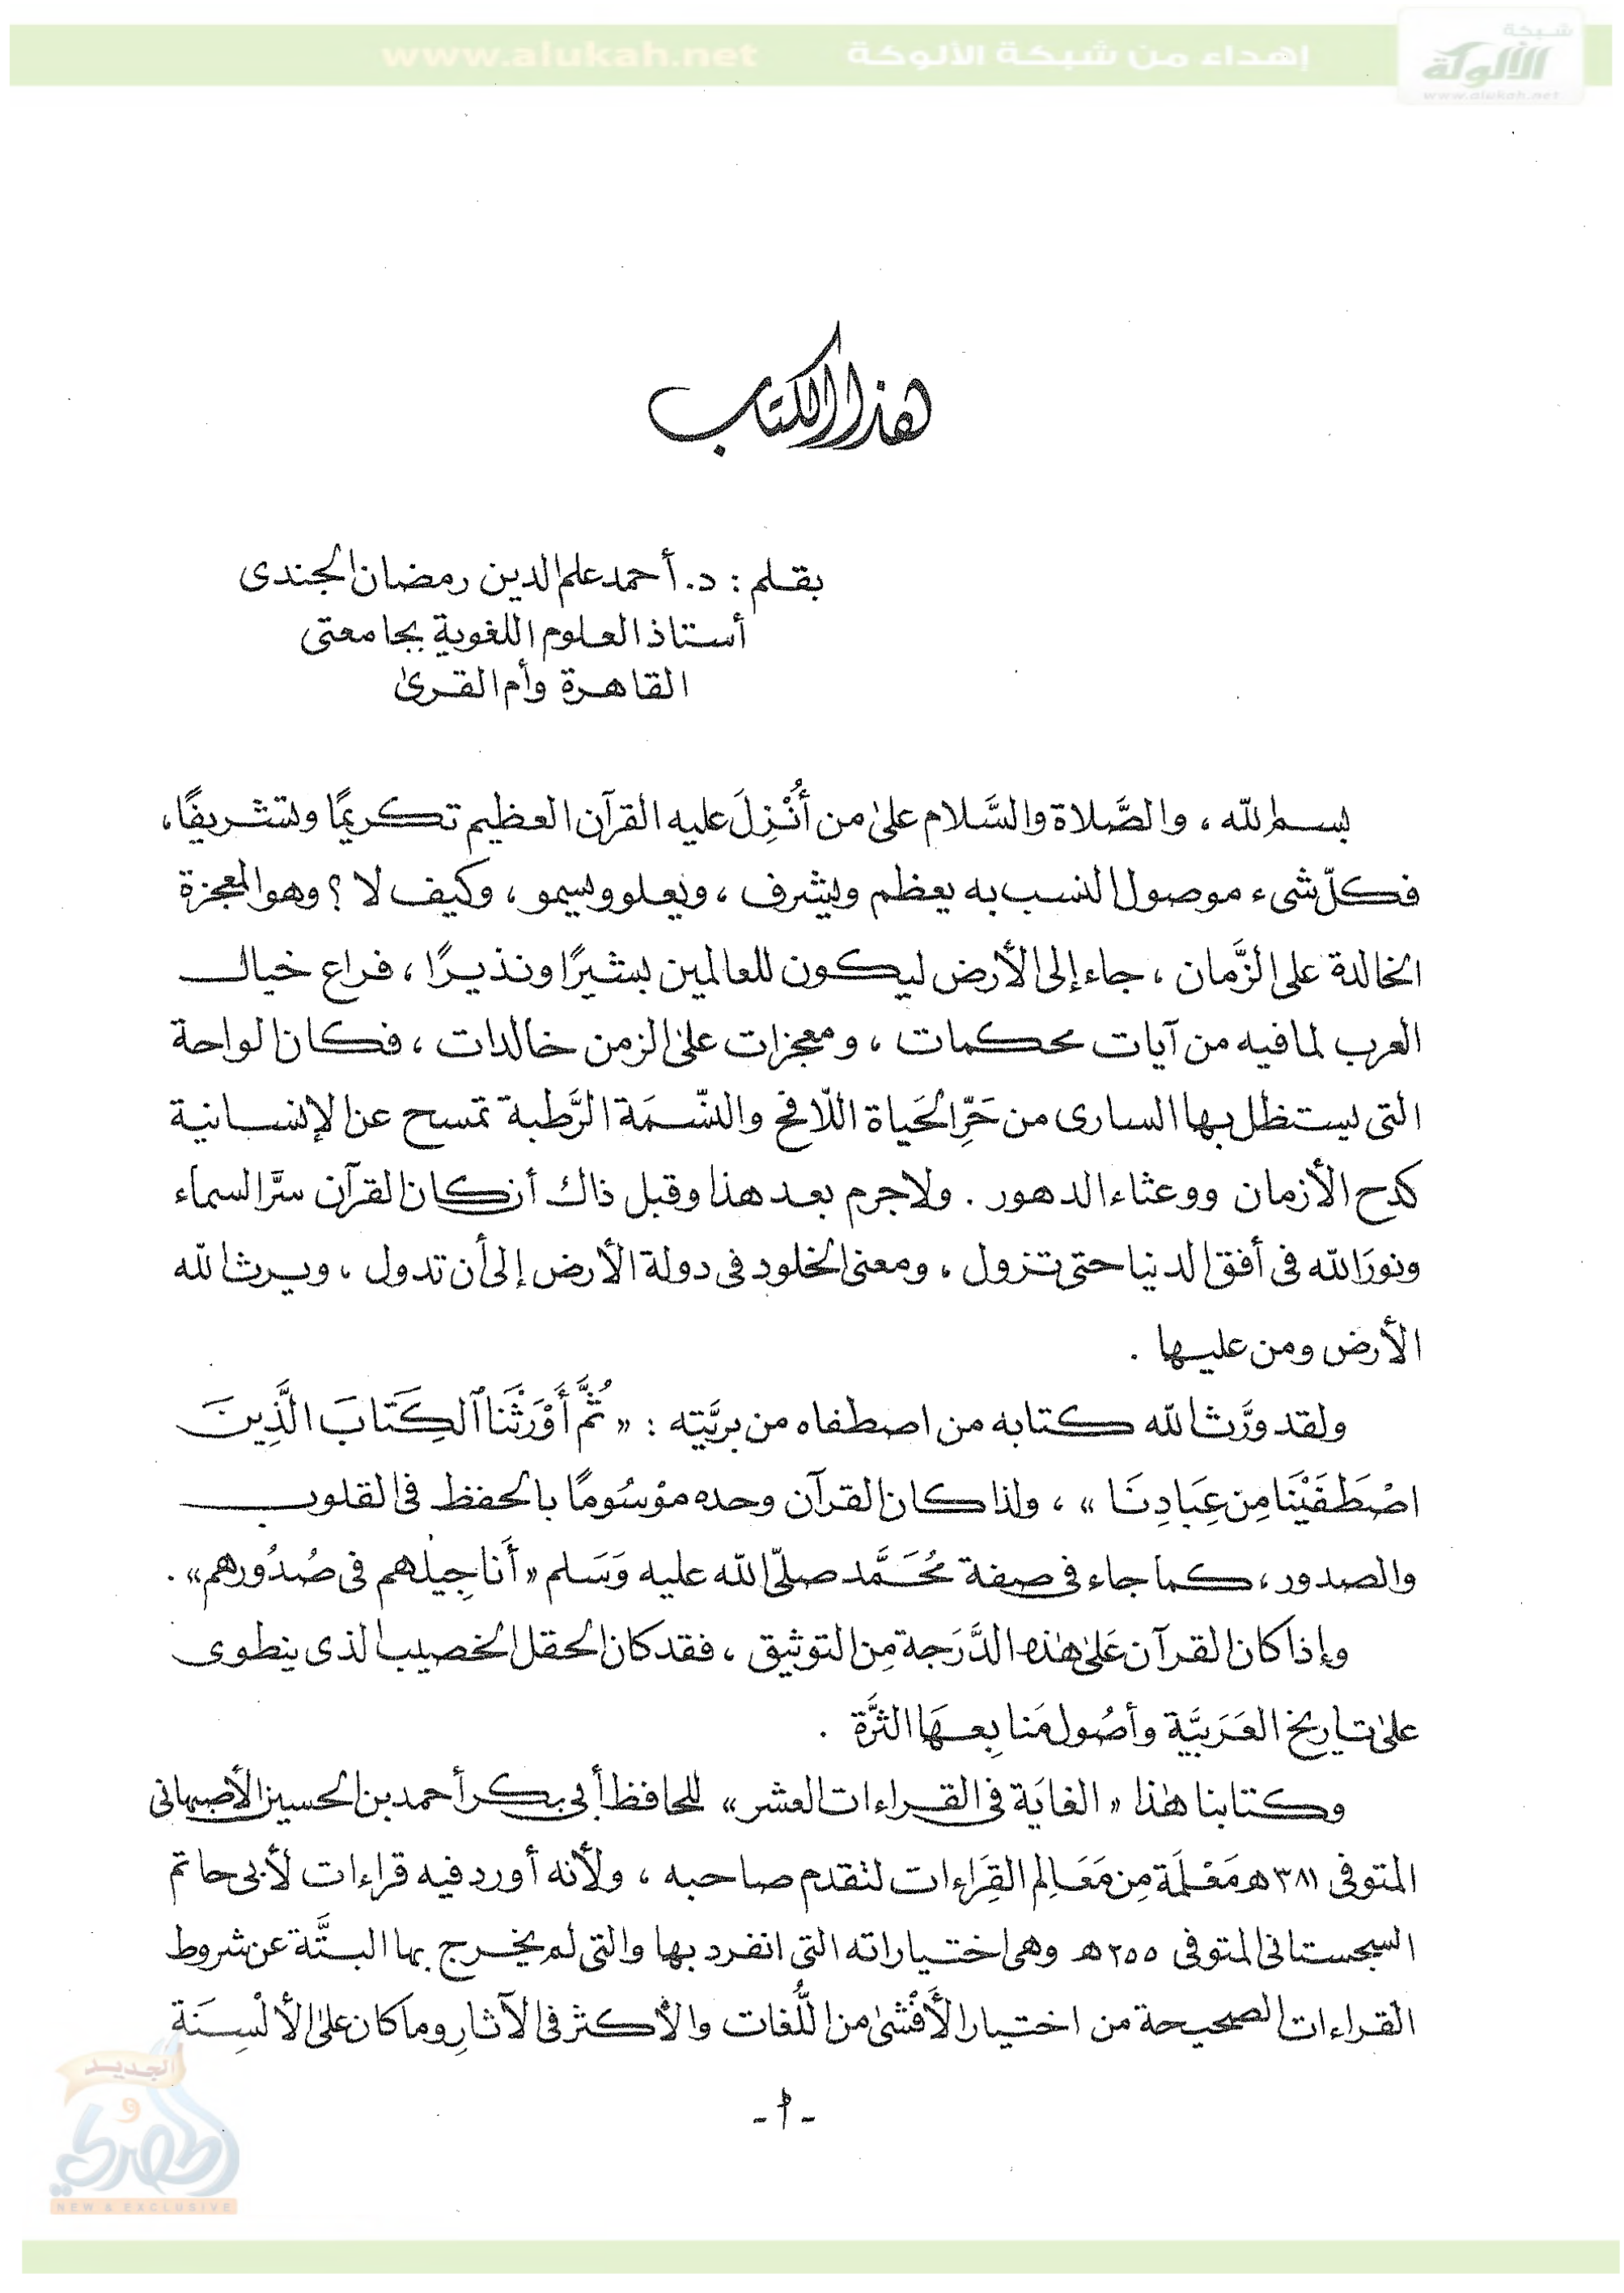 شبكة
الألوكة
www.alukah.net
إهداء من شبكة الألوكة www.alukah.net
هذا الكتاب
بقلم : د. أحمد علم الدين رمضان الجندى
أستاذ العلوم اللغوية بجامعتى
القاهرة وأم القرىٰ
بسم الله ، والصَّلاة والسَّلام علىٰ من أُنْزِلَ عليه القرآن العظيم تكريمًا وتشريفًا ،
فكلّ شىء موصول النسب به يعظم ويشرف ، ويعلو ويسمو ، وكيف لا ؟ وهو المعجزة
الخالدة على الزَّمان ، جاء إلى الأرض ليكون للعالمين بشيرًا ونذيرًا ، فراع خيال
العرب لما فيه من آيات محكمات ، ومعجزات علىٰ الزمن خالدات ، فكان الواحة
التى يستظل بها السارى من حَرِّ الحَياة اللّافح والنّسمَة الرَّطبة تمسح عن الإنسانية
كدح الأزمان ووعثاء الدهور . ولا جرم بعد هذا وقبل ذاك أن كان القرآن سرَّ السماء
ونورَ الله فى أفق الدنيا حتى تزول ، ومعنى الخلود فى دولة الأرض إلى أن تدول ، ويرث الله
الأرض ومن عليها .
ولقد ورَّث الله كتابه من اصطفاه من بريَّته : « ثُمَّ أَوْرَثْنَا ٱلكِتَابَ الَّذِينَ
اصْطَفَيْنَا مِن عِبَادِنَا » ، ولذا كان القرآن وحده موْسُومًا بالحفظ فى القلوب
والصدور ، كما جاء فى صفة مُحَمَّد صلّى الله عليه وَسَلم « أَناجِيلهم فى صُدُورهم» .
وإذا كان القرآن عَلىٰ هٰذه الدَّرَجة مِن التوثيق ، فقد كان الحقل الخصيب الذى ينطوى
علىٰ تاريخ العَرَبيَّة وأصُول مَنابِعهَا الثرَّة .
وكتابنا هٰذا « الغايَة فى القراءات العشر » للحافظ أبى بكر أحمد بن الحسين الأصبهانى
المتوفى ٣٨١ هـ مَعْلَمَة مِن مَعَالِم القِرَاءات لتقدم صاحبه ، ولأنه أورد فيه قراءات لأبى حاتم
السجستانى المتوفى ٢٥٥ هـ وهى اختياراته التى انفرد بها والتى لم يخرج بها البتَّة عن شروط
القراءات الصحيحة من اختيار الأَفْشىٰ من اللُّغات والأكثر فى الآثارِ وما كان علىٰ الألْسِنَة
- أ -
الجديد
و
الحصري
NEW & EXCLUSIVE